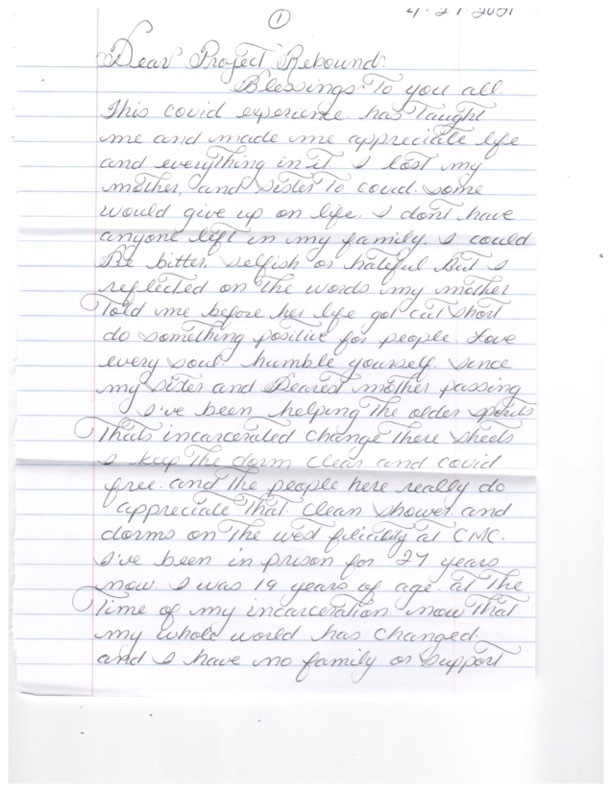 1
4-27-2021
Dear Project Rebound.
Blessings To you all
This covid experience has Taught
me and made me appreciate life
and everything in it I lost my
mother, and sister To covid some
would give up on life. I dont have
anyone left in my family. I could
Be bitter, selfish or hateful But I
reflected on The words my mother
Told me before her life got cut short
do something positive for people. Love
every soul. humble yourself. Since
my sister and Dearest mother passing
I've been helping The older
Thats incarcerated Change There sheets
I keep The dorm clean and covid
free. and The people here really do
appreciate That. Clean shower and
dorms on The west at CMC.
I've been in prison for 27 years
now. I was 19 years of age. at The
Time of my incarceration now That
my whole world has changed.
and I have no family or support